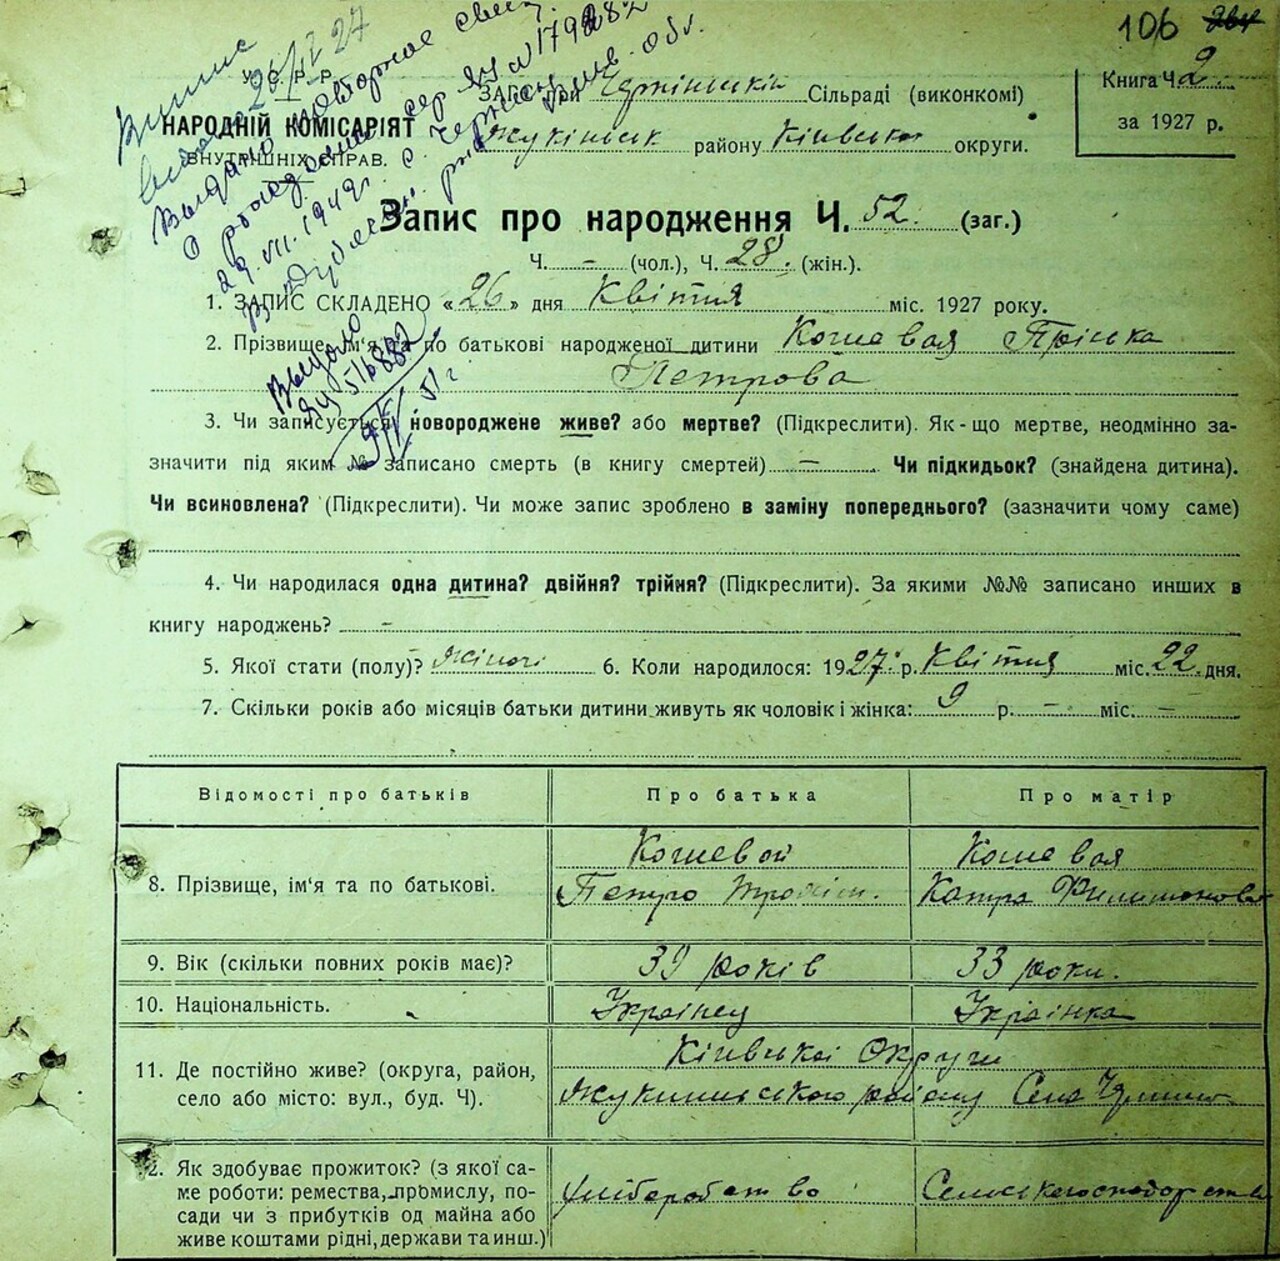 106
Випис
видано 26/IV 27
Выдано повторное свид.
о рождении сер ЯЧ № 179
29.VII.1949г. с.
Выдано
ЯЧ 516882
51 г
У. С. Р. Р.
НАРОДНІЙ КОМІСАРІЯТ
ВНУТРІШНІХ СПРАВ.
ЗАГС при Чернінській Сільраді (виконкомі)
Жукінськ району Київської округи.
Книга Ч. 2
за 1927 р.
Запис про народження Ч. 52. (заг.)
Ч. – (чол.), Ч. 28. (жін.).
1. ЗАПИС СКЛАДЕНО «26» дня Квітня міс. 1927 року.
2. Прізвище, ім'я та по батькові народженої дитини Кошевая Прінька
Петрова
3. Чи записується новороджене живе? або мертве? (Підкреслити). Як-що мертве, неодмінно за-
значити під яким № записано смерть (в книгу смертей) – . Чи підкидьок? (знайдена дитина).
Чи всиновлена? (Підкреслити). Чи може запис зроблено в заміну попереднього? (зазначити чому саме)
4. Чи народилася одна дитина? двійня? трійня? (Підкреслити). За якими №№ записано инших в
книгу народжень? –
5. Якої стати (полу)? жіночі 6. Коли народилося: 1927 р. Квітня міс. 22 дня.
7. Скільки років або місяців батьки дитини живуть як чоловік і жінка: 9 р. – міс. –
Відомості про батьків Про батька Про матір
8. Прізвище, ім'я та по батькові. Кошевой Кошевая
Петро Трохім. Катря Филимонова
9. Вік (скільки повних років має)? 39 років 33 роки.
10. Національність. Українец Українка
11. Де постійно живе? (округа, район,
село або місто: вул., буд. Ч).
Київської Округи
Жукинського району Села Чернино
12. Як здобуває прожиток? (з якої са-
ме роботи: ремества, промислу, по-
сади чи з прибутків од майна або
живе коштами рідні, держави та инш.)
хліборобство Сельськогосподарство